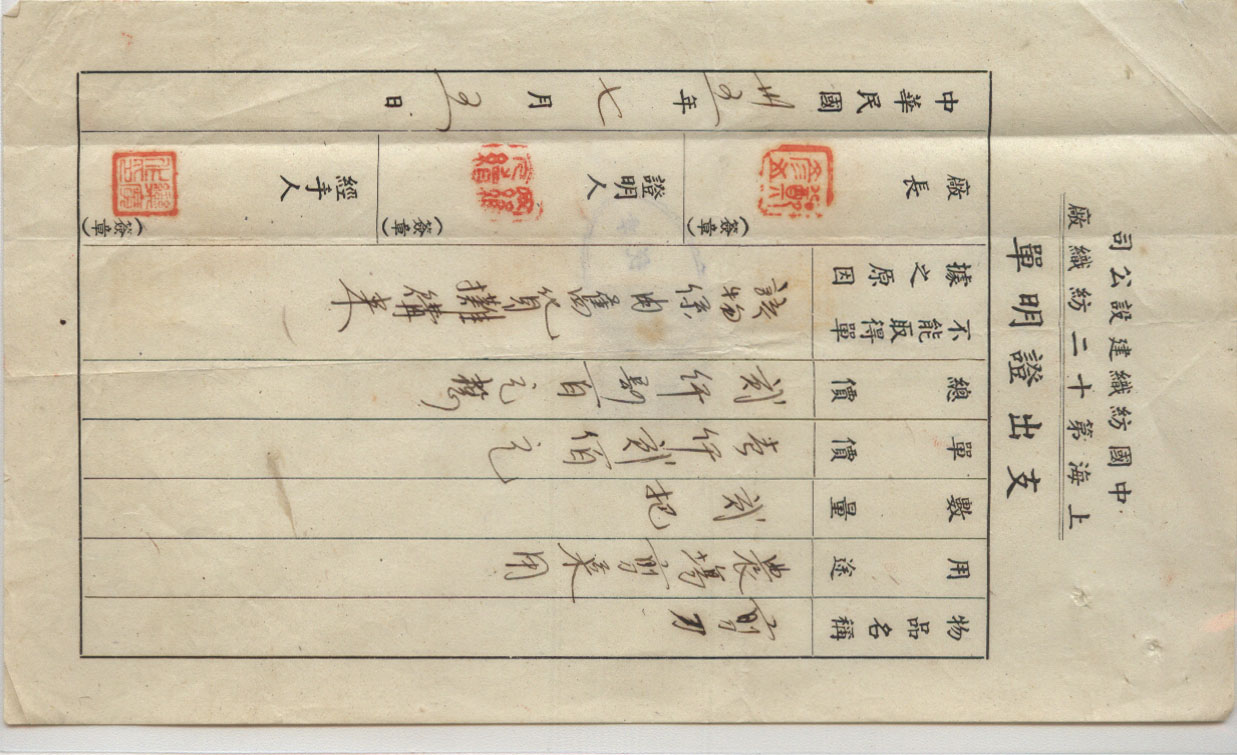 中國紡織建設公司
上海第十二紡織廠
支出證明單
物品名稱
剪刀
用途
農場剪菜用
數量
貳把
單價
壹仟貳佰元
總價
貳仟肆百元整
不能取得單據之原因
該物係向舊貨攤購來
廠長
(簽章)
證明人
(簽章)
經手人
(簽章)
中華民國卅五年七月五日